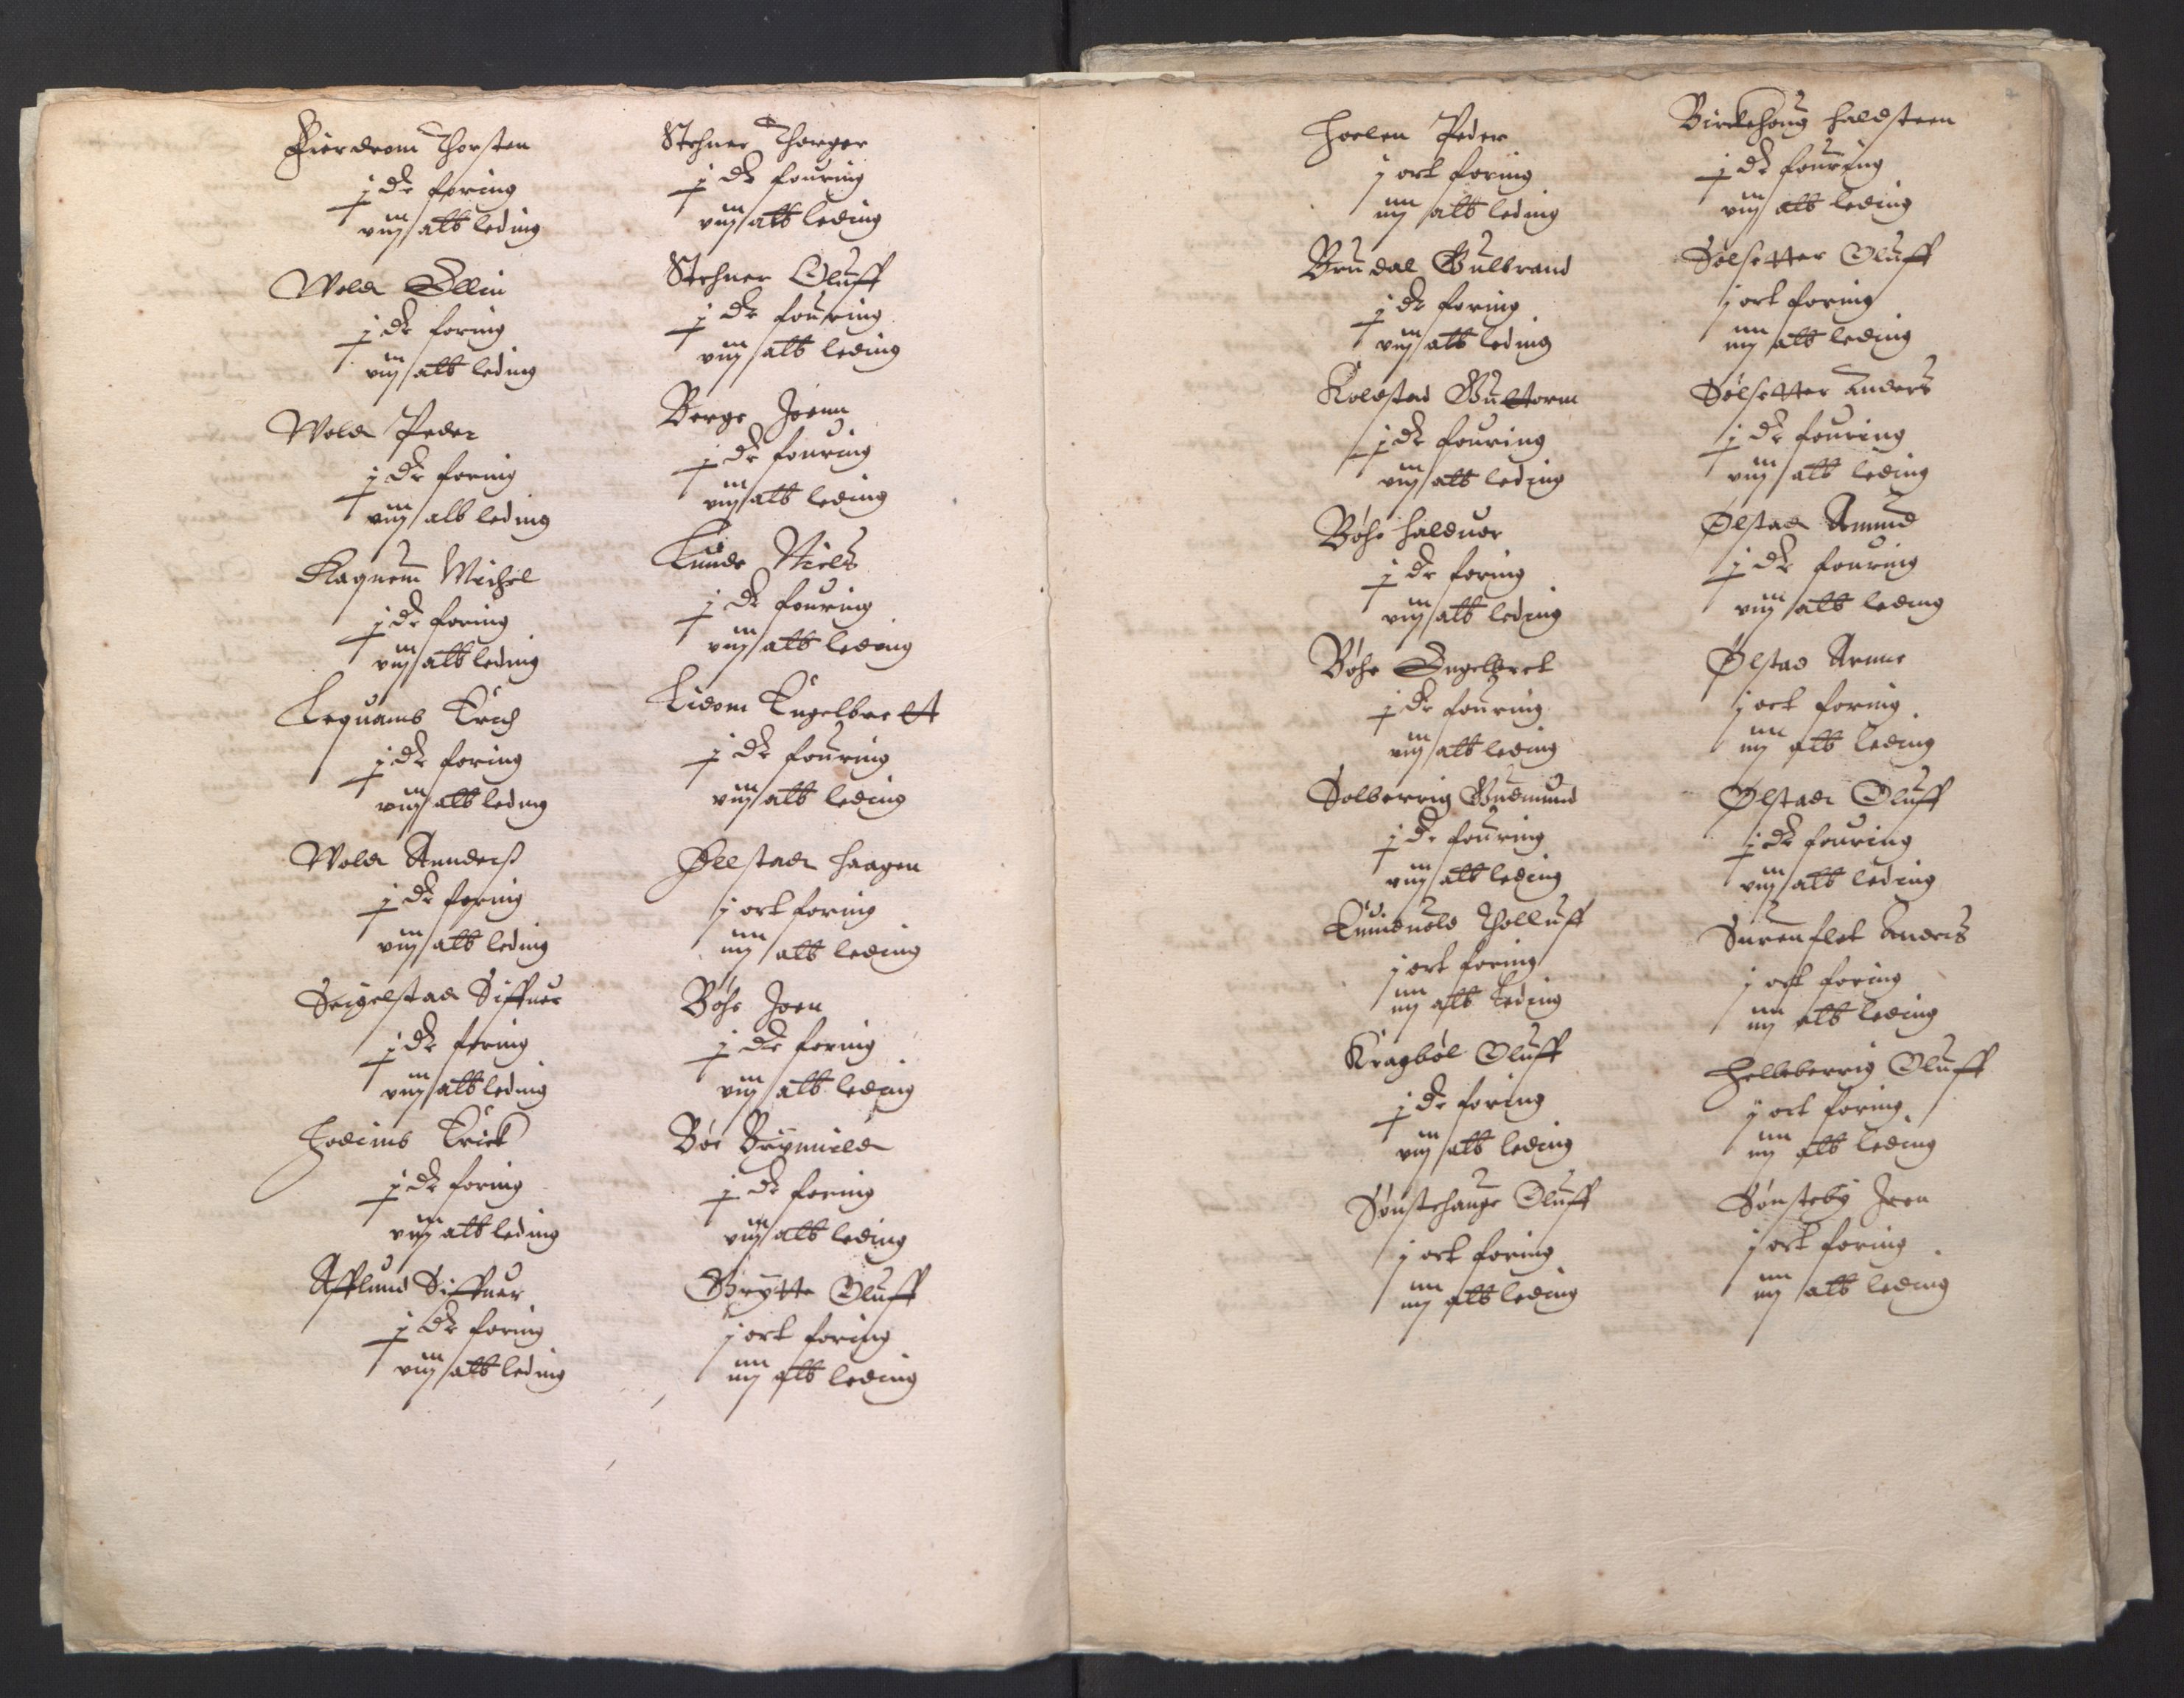 Fierdrom Thorsten
j dr foring
viij alb leding
Wold Ellin
j dr foring
viij alb leding
Wold Peder
j dr foring
viij alb leding
Klaguem Michel
j dr foring
viij alb leding
Leguamb Erich
j dr foring
viij alb leding
Wold Annderß
j dr foring
viij alb leding
Seigelstad Siffuer
j dr foring
viij alb leding
Hodimb Erick
j dr foring
viij alb leding
Afflund Siffuer
j dr foring
viij alb leding
Stehner Thorger
j dr fouring
viij alb leding
Stehner Oluff
j dr fouring
viij alb leding
Berge Joenn
j dr fouring
viij alb leding
Lunde Niels
j dr fouring
viij alb leding
Lidom Engelbrett
j dr fouring
viij alb leding
Øllstad Haagen
j ort foring
iiij alb leding
Bøhe Joen
j dr foring
viij alb leding
Bøe Brÿnnild
j dr foring
viij alb leding
Grÿtte Oluff
j ort foring
iiij alb leding
Hoelen Peder
j ort foring
iiij alb leding
Brudal Gulbrand
j dr foring
viij alb leding
Kolstad Guttorm
j dr fouring
viij alb leding
Bøhe Halduor
j dr foring
viij alb leding
Bøhe Engelbret
j dr fouring
viij alb leding
Solberrig Gudmund
j dr fouring
viij alb leding
Tholluff
j ort foring
iiij alb leding
Kragbøl Oluff
j dr foring
viij alb leding
Sønstehauge Oluff
j ort foring
iiij alb leding
Birckehoug Haldsteen
j dr fouring
viij alb leding
Sølsetter Oluff
j ort foring
iiij alb leding
Sølsetter Anders
j dr fouring
viij alb leding
Ølstad Amund
j dr fouring
viij alb leding
Ølstad Arnne
j ort foring
iiij alb leding
Ølstad Oluff
j dr fouring
viij alb leding
Surenflet Anders
j ort foring
iiij alb leding
Helleberrig Oluff
j ort foring
iiij alb leding
Sønstebÿ Joen
j ort foring
iiij alb leding